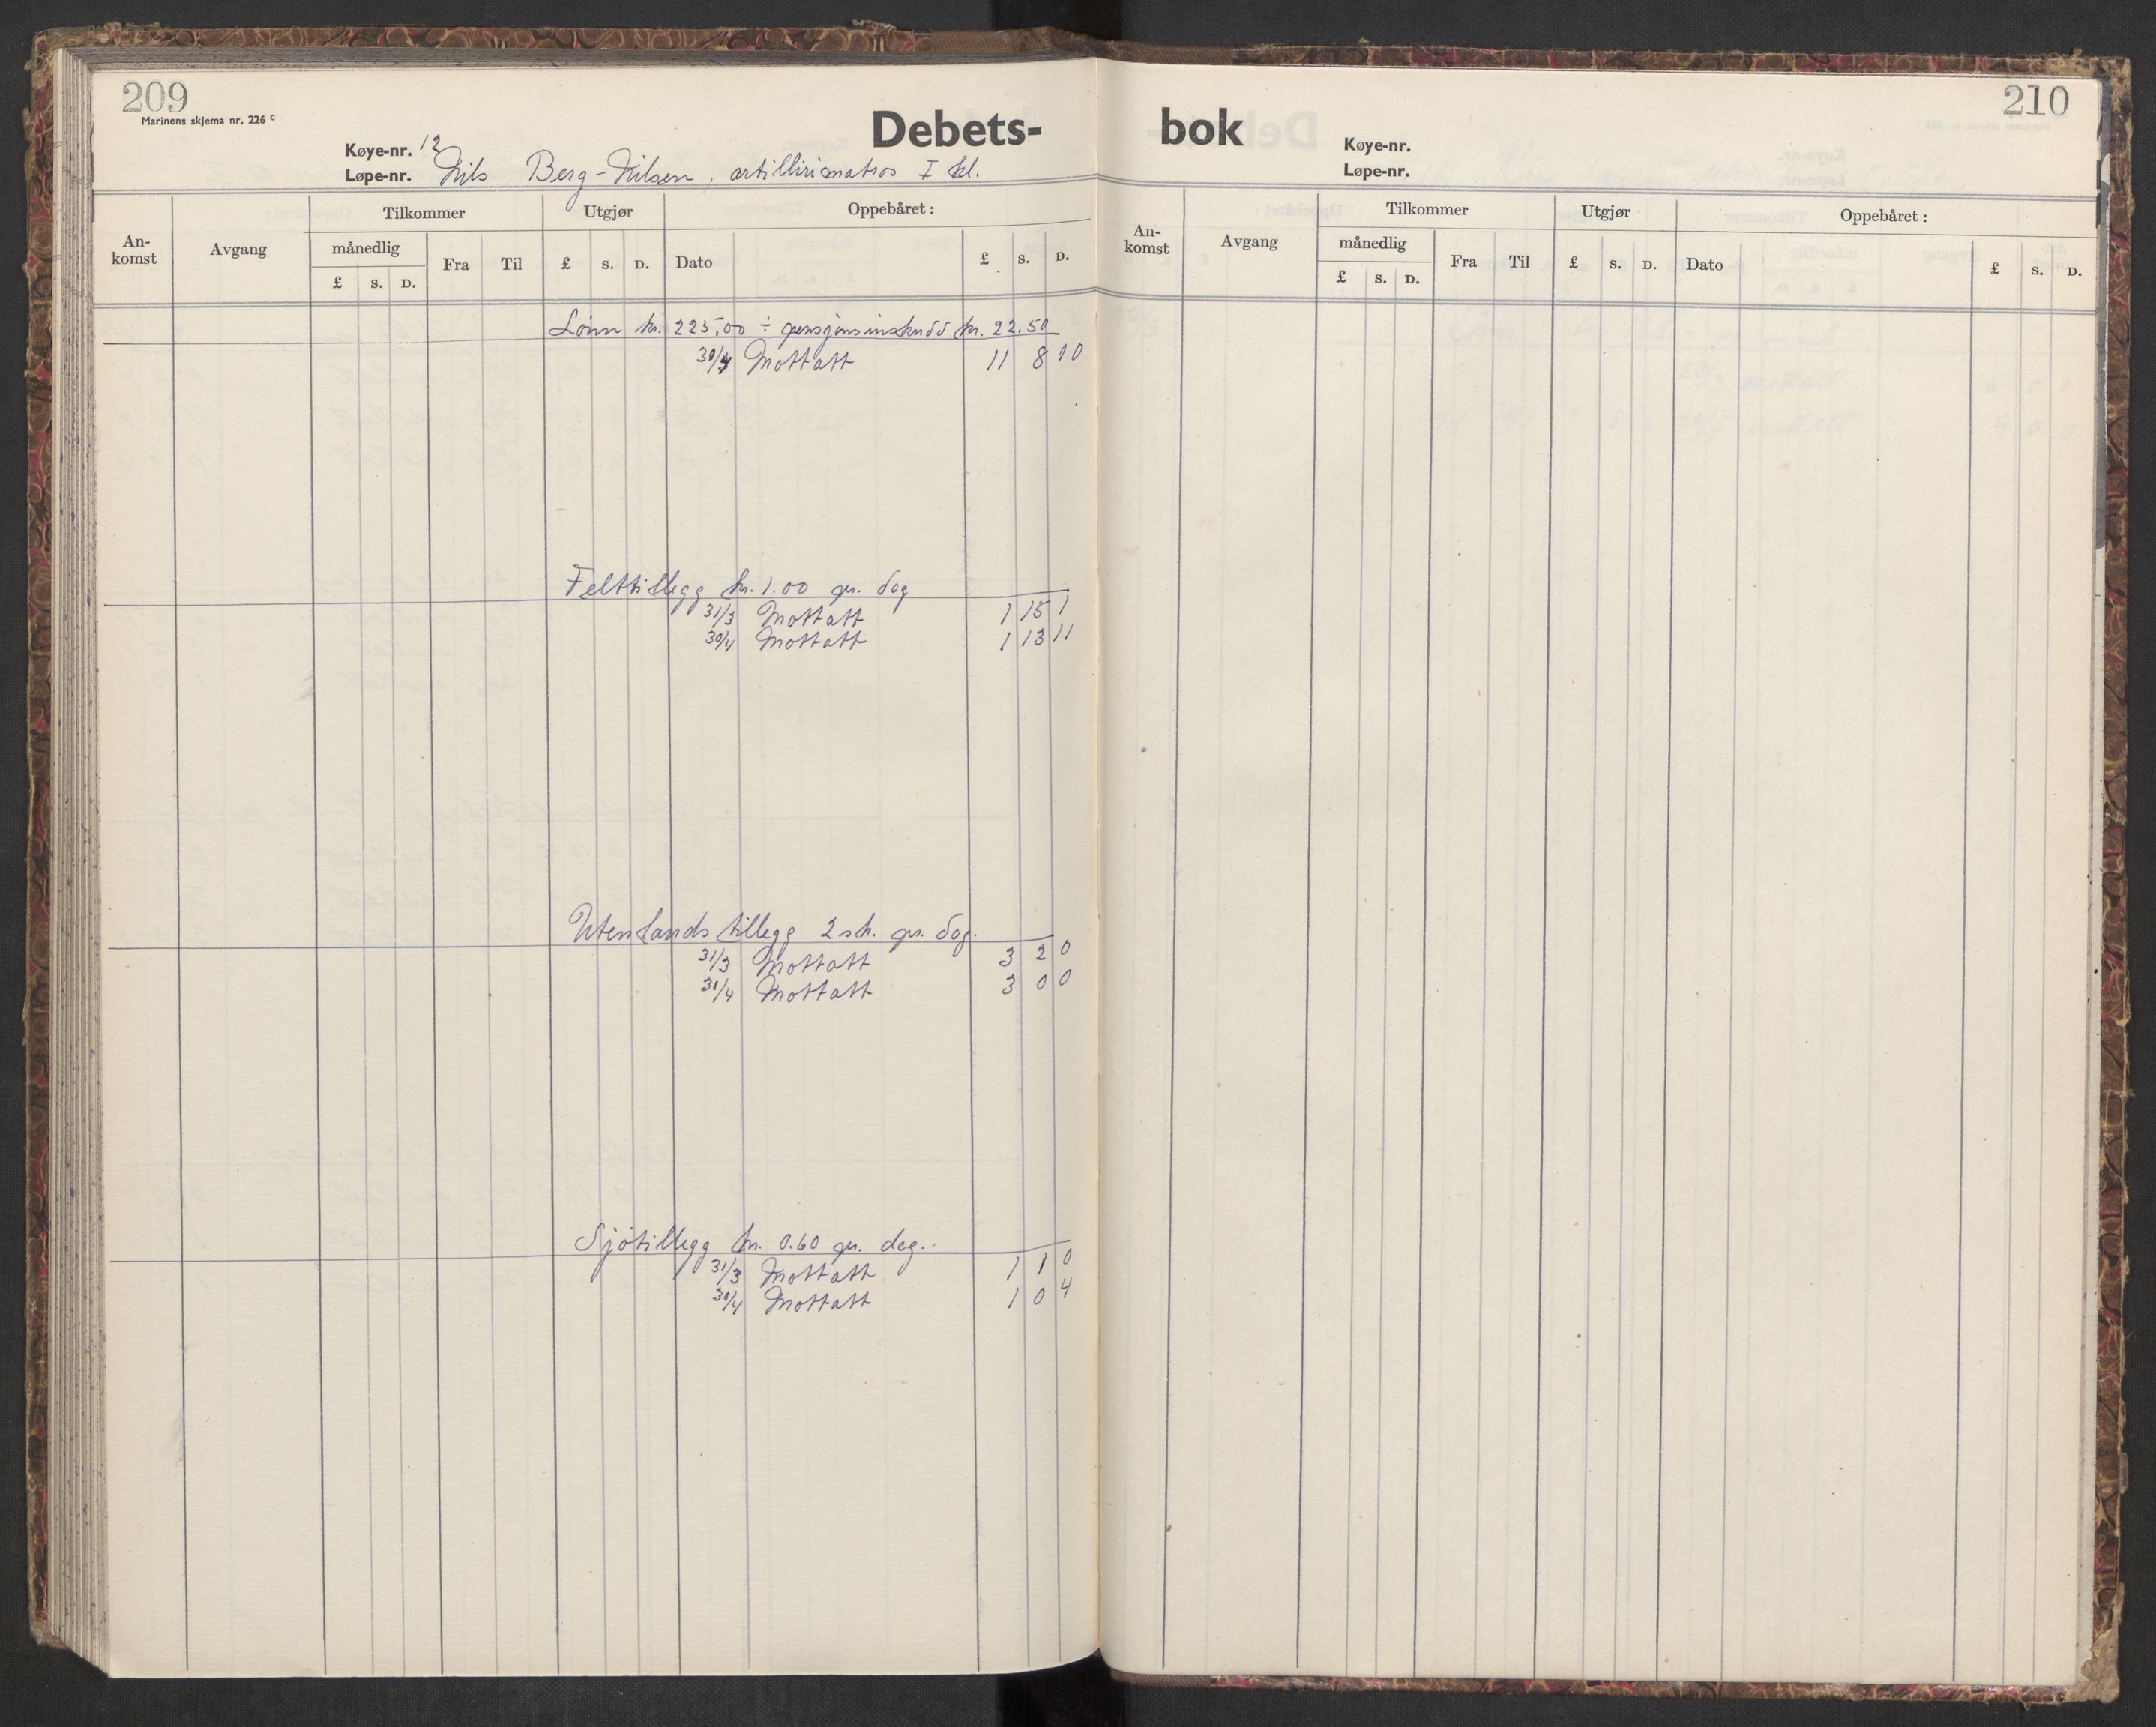 209
Marinens skjema nr. 226 c
Debets-
Køye-nr. 12
Løpe-nr. Nils Berg-Nilsen, artillirimatros I kl.
An-komst Avgang Tilkommer månedlig £ s. D. Fra Til Utgjør £ s. D. Oppebåret: Dato £ s. D.
Lønn kr. 225,00 ÷ pensjonsinskudd kr. 22.50
30/4 Mottatt 11 8 10
Felttillegg kr. 1.00 pr. dag
31/3 Mottatt 1 15 1
30/4 Mottatt 1 13 11
Utenlands tillegg 2 sh. pr. dag.
31/3 Mottatt 3 2 0
31/4 Mottatt 3 0 0
Sjøtillegg kr. 0.60 pr. dag.
31/3 Mottatt 1 1 0
30/4 Mottatt 1 0 4
210
bok
Køye-nr.
Løpe-nr.
An-komst Avgang Tilkommer månedlig £ s. D. Fra Til Utgjør £ s. D. Oppebåret: Dato £ s. D.